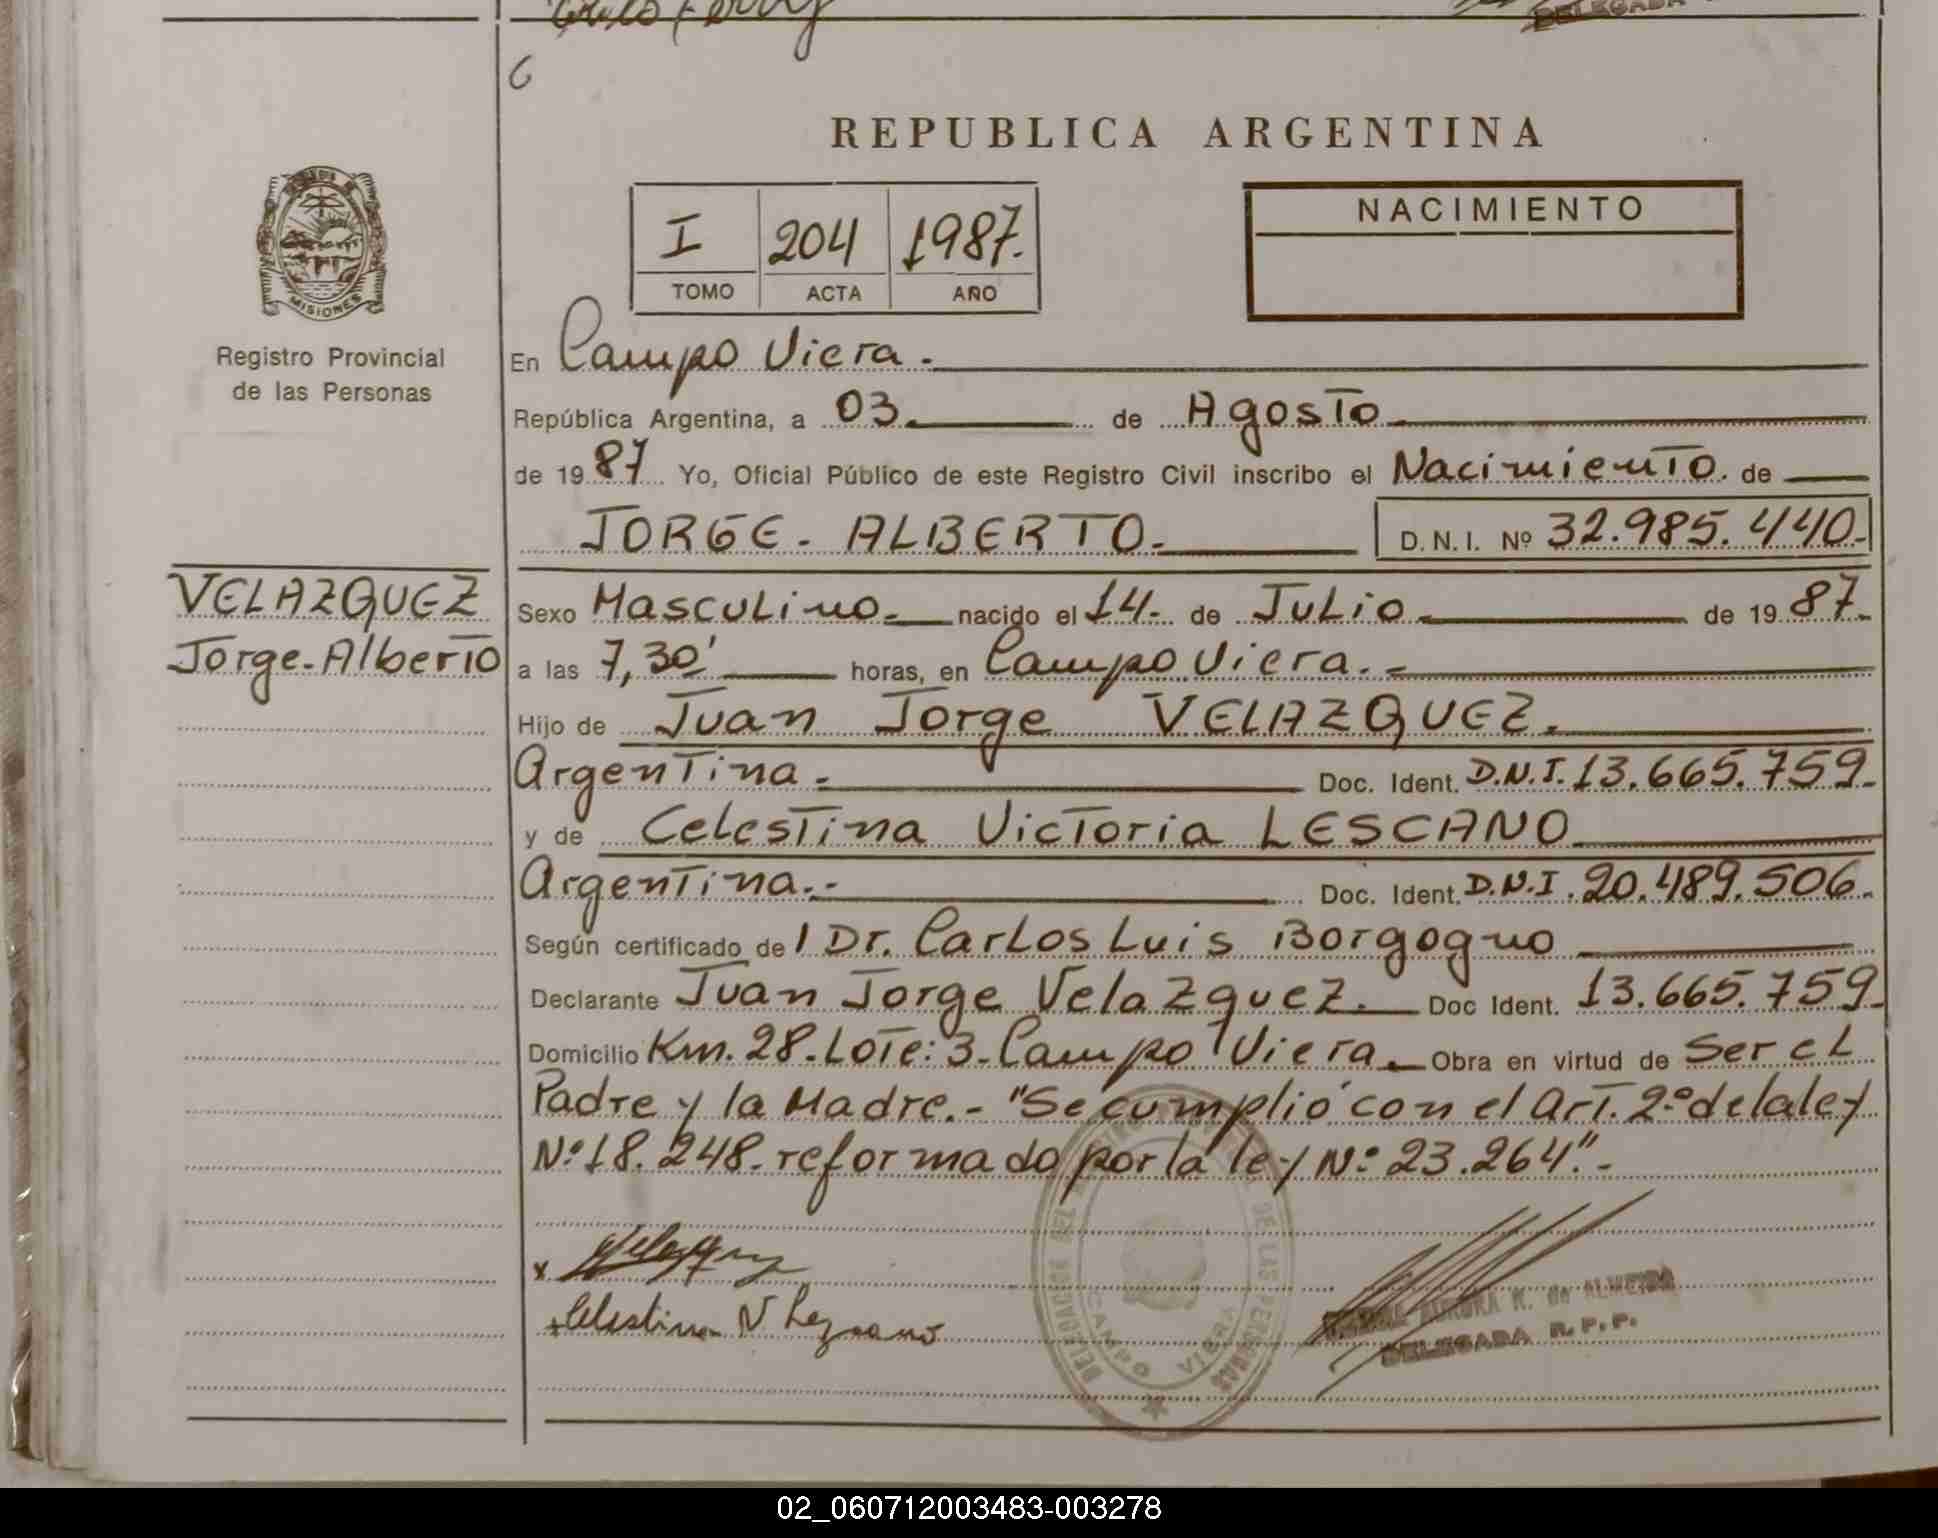 DELEGADA
6
REPUBLICA ARGENTINA
I 204 1987.
TOMO ACTA AÑO
NACIMIENTO
MISIONES
Registro Provincial
de las Personas
En Campo Viera.
República Argentina, a 03. de Agosto
de 1987 Yo, Oficial Público de este Registro Civil inscribo el Nacimiento. de
JORGE - ALBERTO.- D.N.I. Nº 32.985.440.-
VELAZQUEZ
Jorge-Alberto
Sexo Masculino. nacido el 14.- de Julio de 1987.-
a las 7,30' horas, en Campo Viera.-
Hijo de Juan Jorge VELAZQUEZ.
Argentina.- Doc. Ident. D.N.I. 13.665.759.-
y de Celestina Victoria LESCANO
Argentina.- Doc. Ident. D.N.I. 20.489.506.-
Según certificado del Dr. Carlos Luis Borgogno
Declarante Juan Jorge Velazquez. Doc Ident. 13.665.759.-
Domicilio Km. 28. Lote: 3-Campo Viera. Obra en virtud de Ser el
Padre y la Madre.- "Se cumplió con el Art. 2º de la ley
Nº 18.248. reformado por la ley Nº 23.264".-
x Velazquez
x Celestina V Lezcano
DE LAS PERSONAS
CAMPO VIERA
K. de ALMEIDA
DELEGADA R.P.P.
02_060712003483-003278